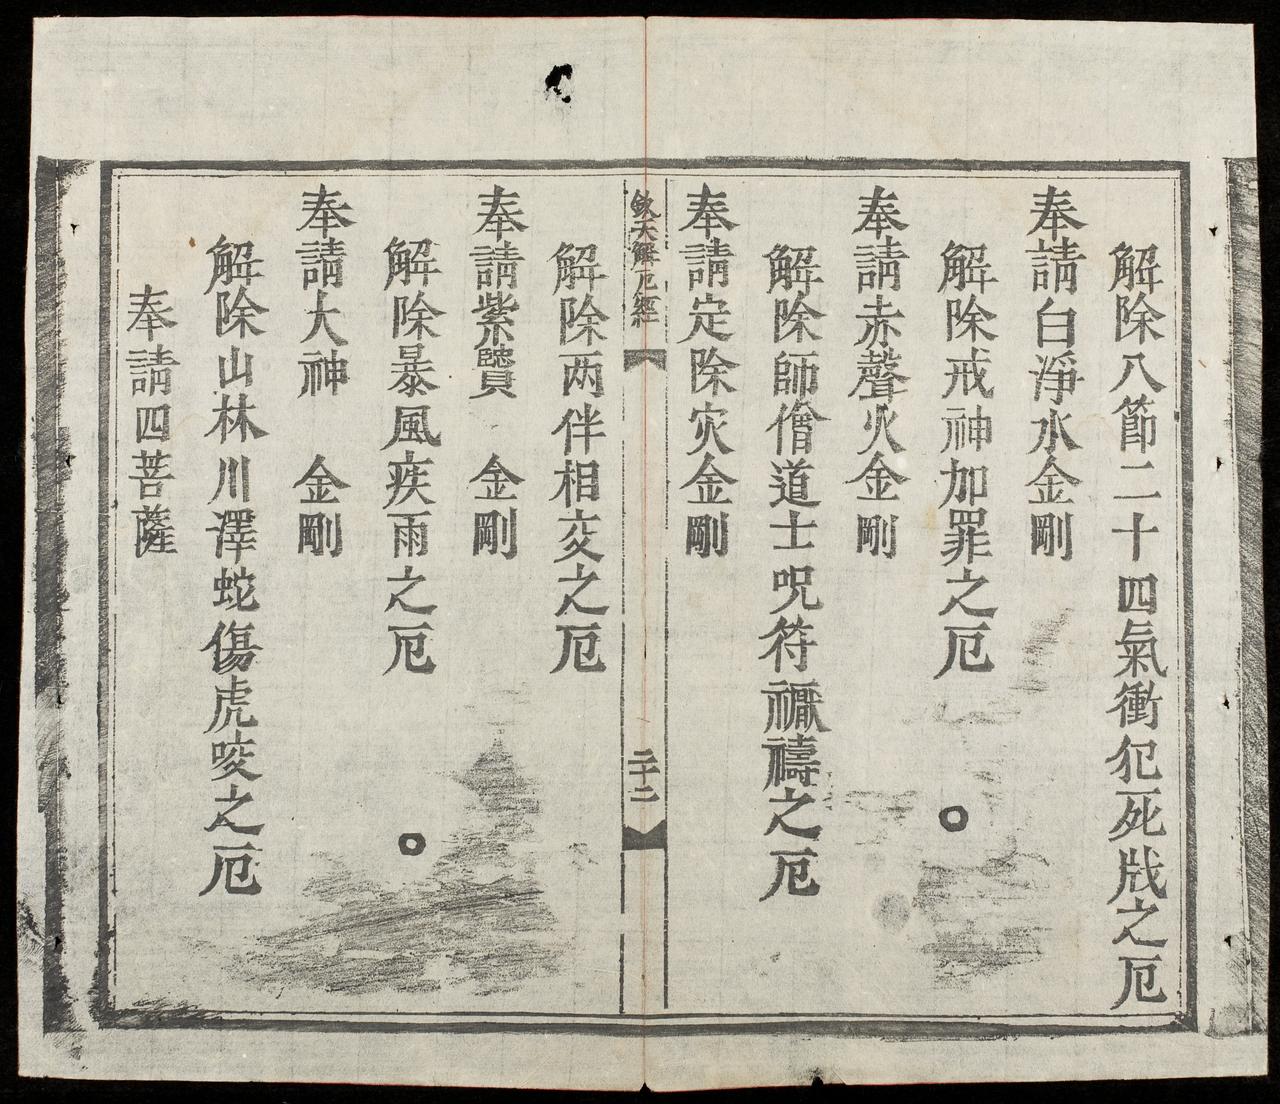 解除八節二十四氣衝犯死戕之厄
奉請白淨水金剛
解除戒神加罪之厄
奉請赤聲火金剛
解除師僧道士呪符禨禱之厄
奉請定除灾金剛
欽天解厄經
二十二
解除两伴相交之厄
奉請紫賢金剛
解除暴風疾雨之厄
奉請大神金剛
解除山林川澤蛇傷虎咬之厄
奉請四菩薩